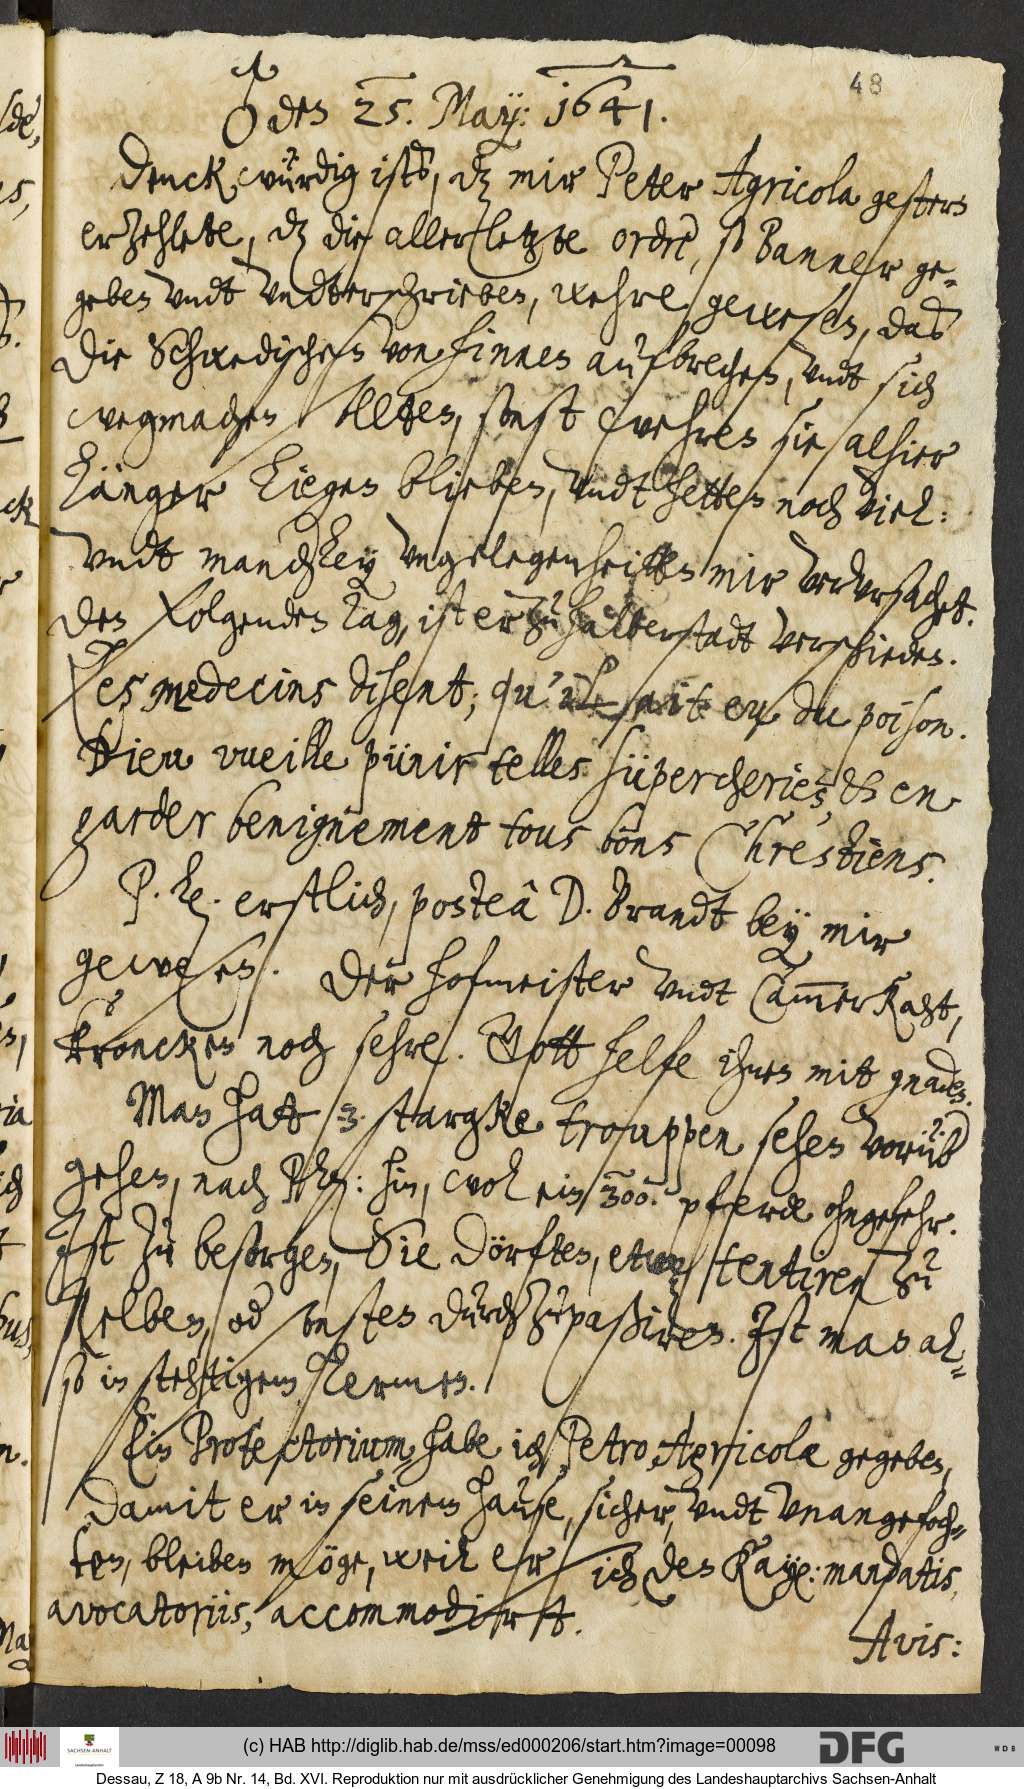 48
♂ den 25. May: 1641.
Denckwürdig ists, dz mir Peter Agricola gestern
erzehlete, dz die allerletzte ordre, so Banner ge-
geben vndt vndterschrieben, wehre gewesen, das
die Schwedischen von hinnen aufbrechen, vndt sich
wegmachen sollten, sonst wehren sie alhier
länger liegen blieben, vndt hetten noch viel:
vndt mancherley vngelegenheitten mir vervrsachet.
Den folgenden tag, ist er zu Halberstadt verschieden.
Les medecins disent; qu'il ait eu du poison.
Dieu vueille pünir telles süpercheries, & en
garder benignement tous bons Chrestiens.
P. he. erstlich, posteà D. Brandt bey mir
gewesen. Der hofmeister vndt CammerRaht,
kröncken noch sehre. Gott helfe ihnen mit gnaden.
Man hatt 3 starcke trouppen sehen vorüb
gehen, nach hin, wol ein 300. pferde ohngefehr.
Ist zu besorgen, Sie dörften, etwas tentiren zu
selben, od sonsten durchzupaßiren. Ist man al-
so in stehtigem Lermen.
Ein Protectorium habe ich Petro Agricolæ gegeben,
damit er in seinem hause, sicher, vndt vnangefoch-
ten, bleiben möge, weil er sich den Kayß: mandatis,
avocatoriis, accommodirt.
Avis:
(c) HAB http://diglib.hab.de/mss/ed000206/start.htm?image=00098
SACHSEN-ANHALT
Landeshauptarchiv
DFG
WDB
Dessau, Z 18, A 9b Nr. 14, Bd. XVI. Reproduktion nur mit ausdrücklicher Genehmigung des Landeshauptarchivs Sachsen-Anhalt